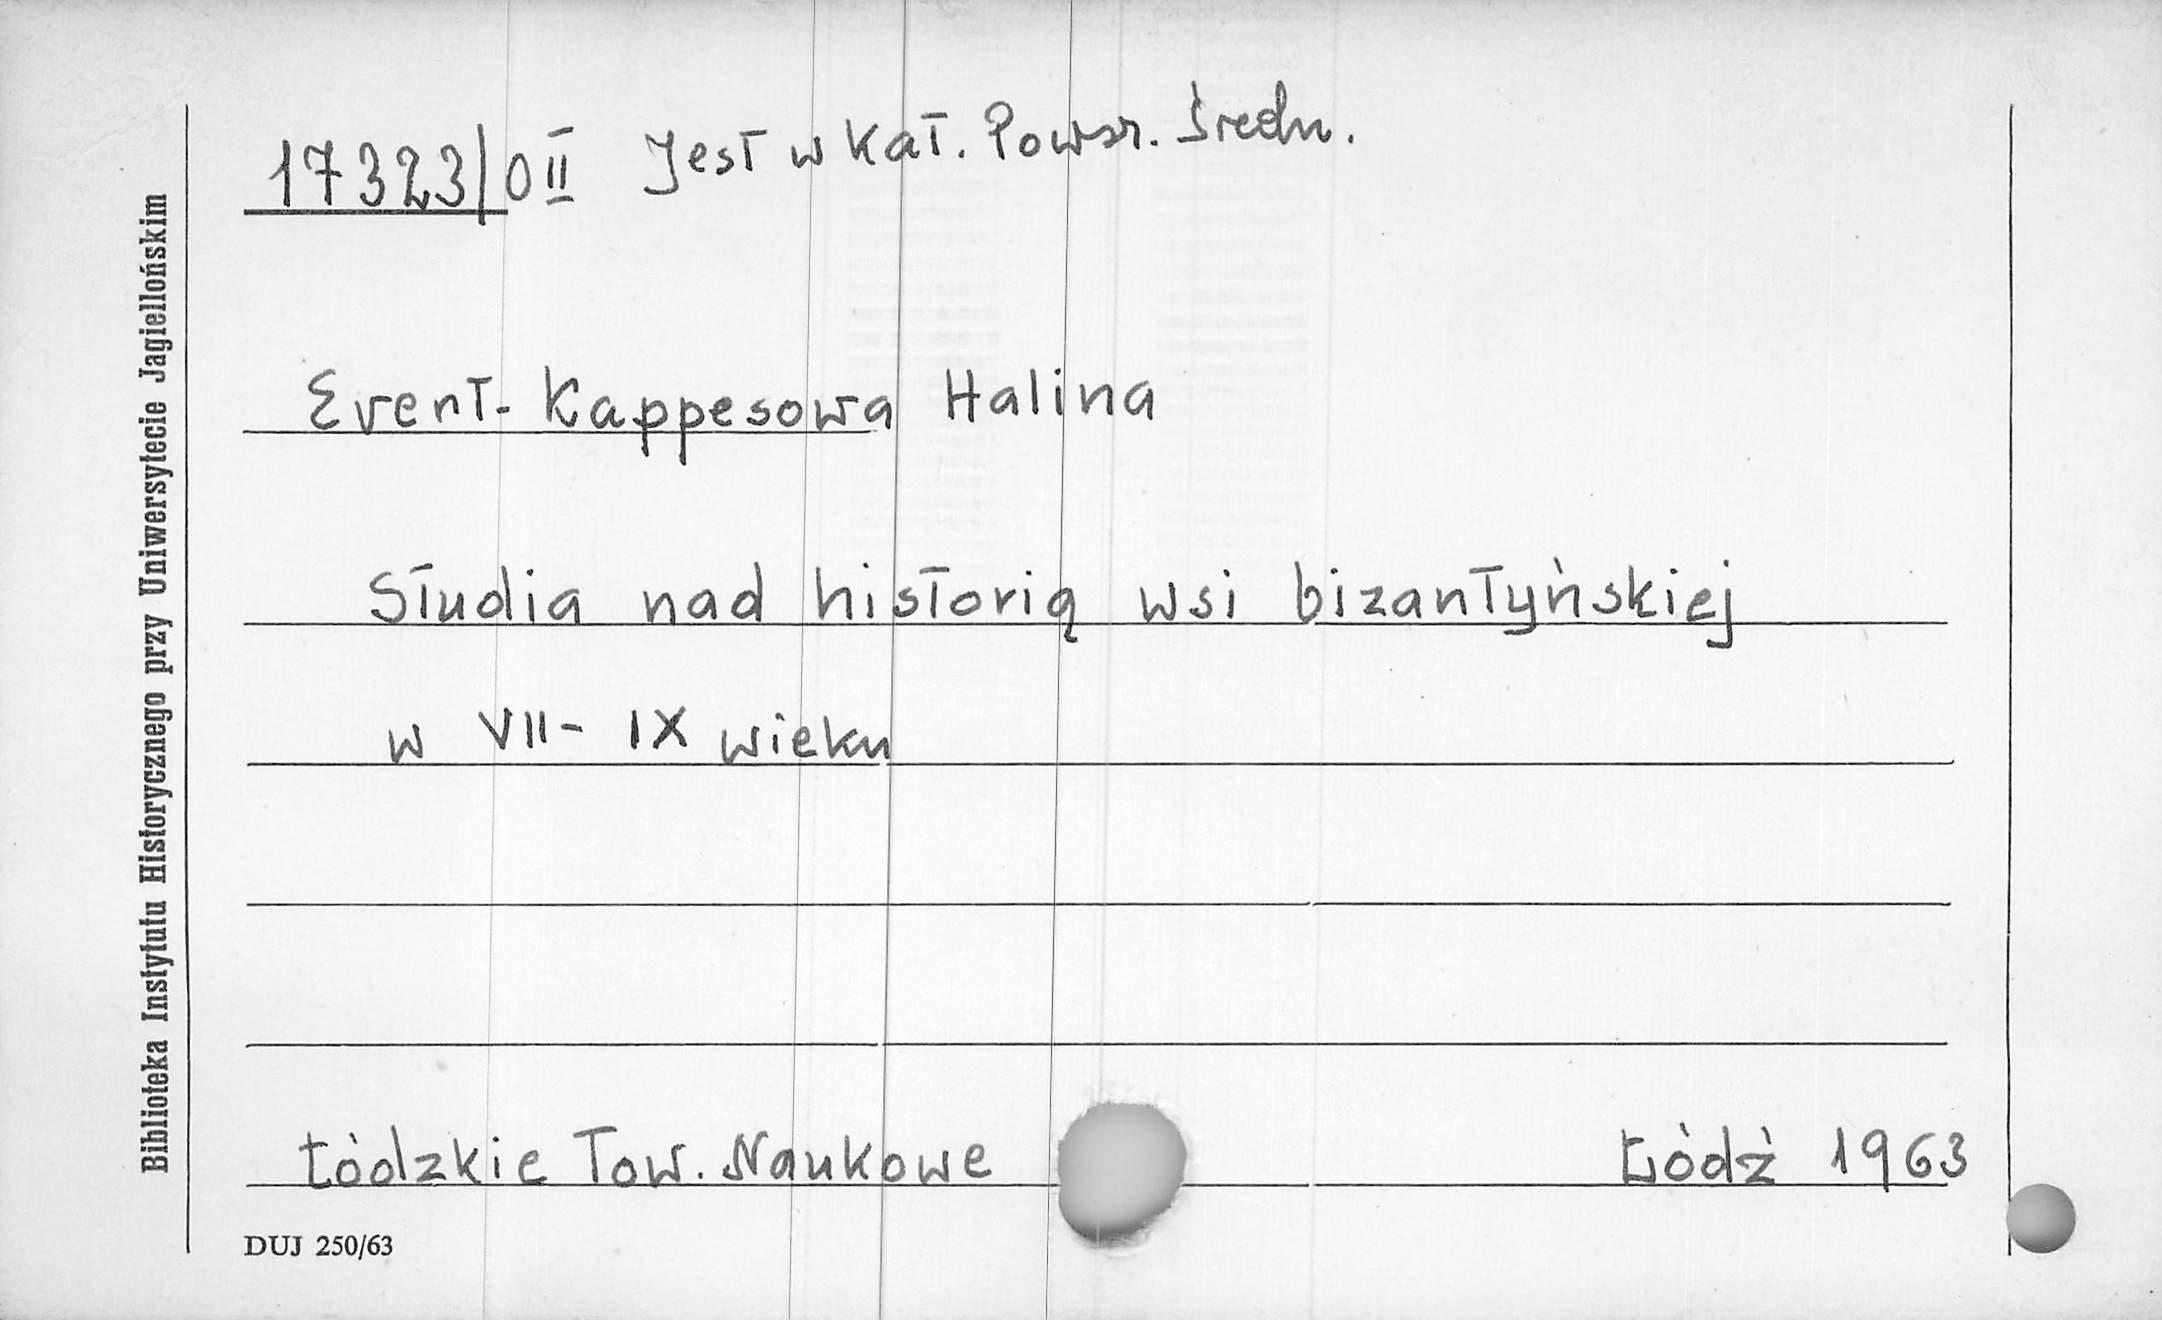 17323/0 II Jest w Kat. Powsz. Średn.
Evert-Kappesowa Halina
Studia nad historią wsi bizantyńskiej
w VII-IX wieku
Łódzkie Tow. Naukowe Łódź 1963
DUJ 250/63
Biblioteka Instytutu Historycznego przy Uniwersytecie Jagiellońskim